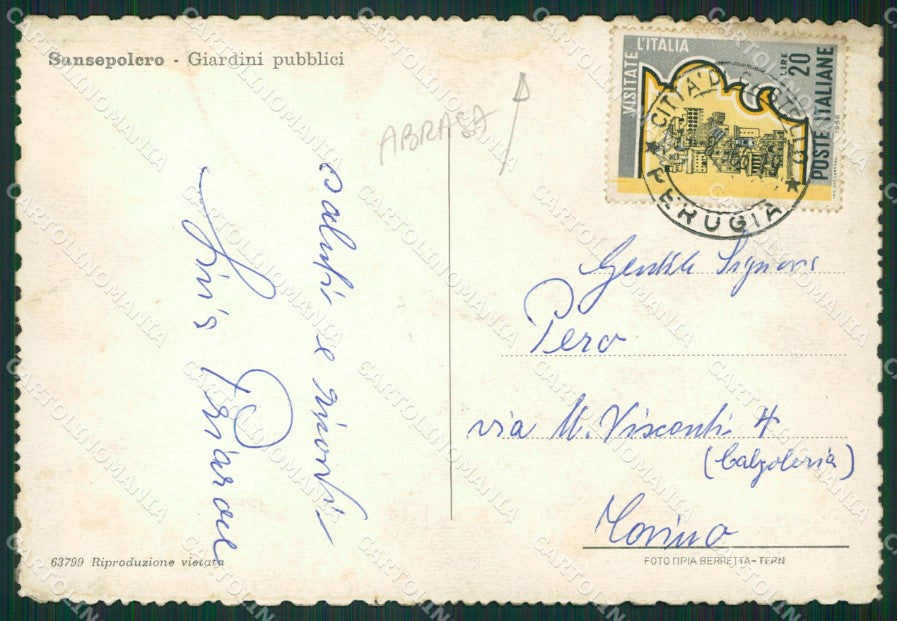 Sansepolcro - Giardini pubblici
ABRASA
VISITATE L'ITALIA
LIRE 20
POSTE ITALIANE
CITTA' DI CASTELLO
PERUGIA
saluti e ricordi
Gentili Signori
Pero
via M. Visconti 4
(Calzoleria)
Torino
63799 Riproduzione vietata
FOTOTIPIA BERRETTA - TERNI
CARTOLINOMANIA